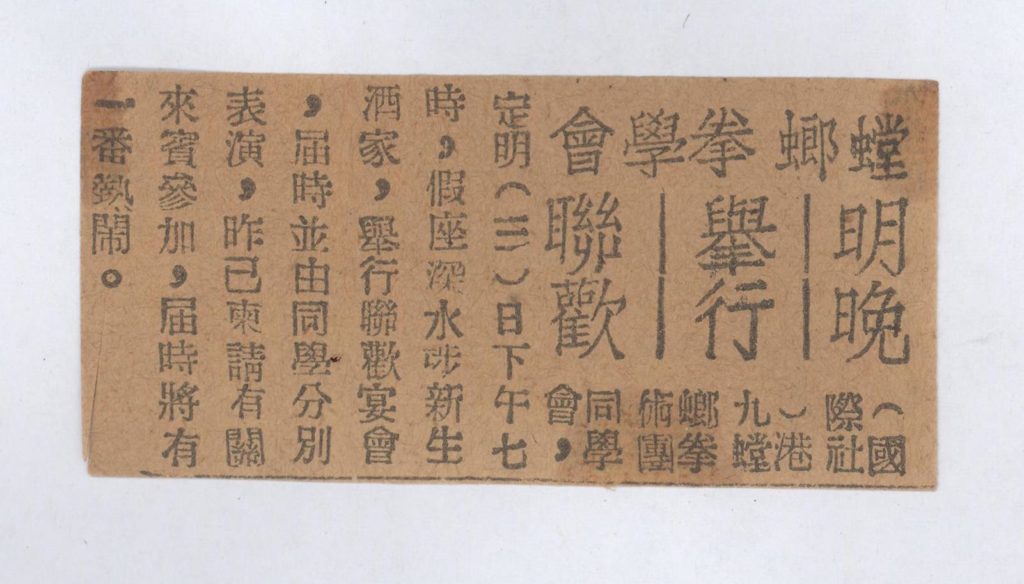 螳螂拳學會
明晚
舉行
聯歡
（國
際社
）港
九螳
螂拳
術團
同學
會，
定明（三）日下午七
時，假座深水埗新生
酒家，舉行聯歡宴會
，屆時並由同學分別
表演，昨已柬請有關
來賓參加，屆時將有
一番熱鬧。